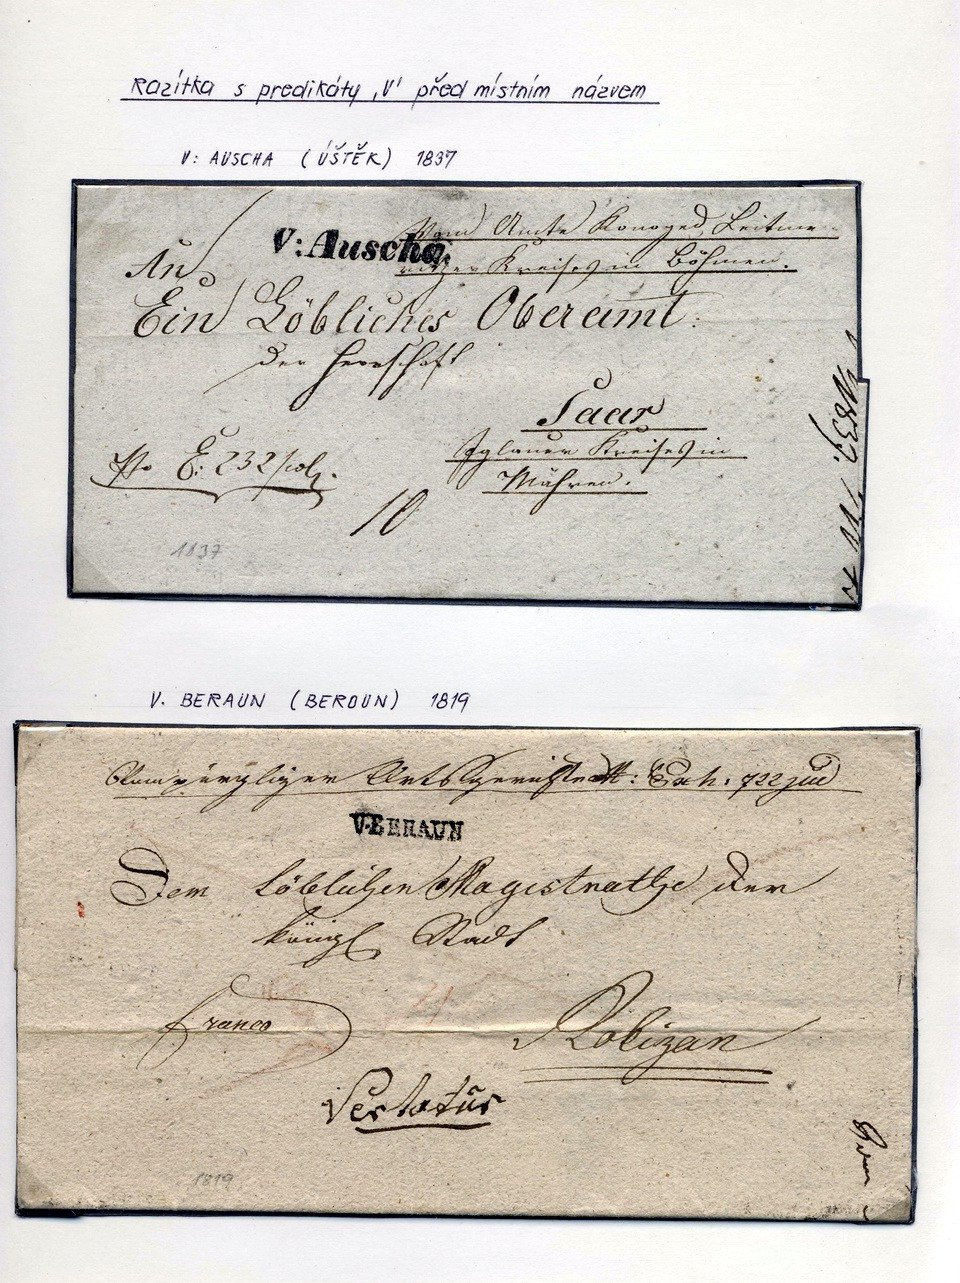 Razítka s predikáty ‚V' před místním názvem
V: AUSCHA (ÚŠTĚK) 1837
V: Auscha.
Vom Amte Konoged, Leitme-
ritzer Kreises in Böhmen.
An
Ein Löbliches Oberamt
der Herrschaft
Saar
Iglauer Kreises in
Mähren.
E: 232
10
1837
V. BERAUN (BEROUN) 1819
Exh: 722 jud
V. BERAUN
Dem löblichen Magistrathe der
königl Stadt
franco
Rokizan
1819